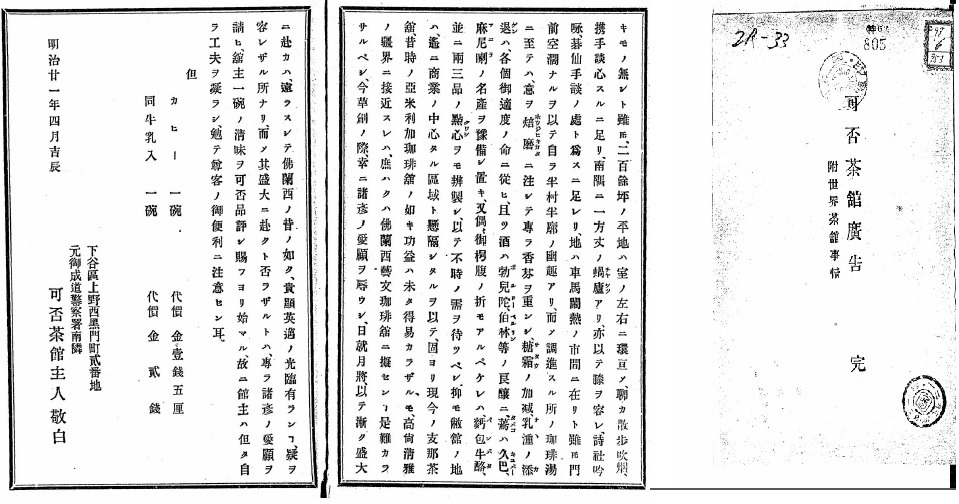 可否茶館廣告
附世界茶館事情
完
2A-33
特62
805
キモノ無シト雖モ、二百餘坪ノ平地ハ室ノ左右ニ環亘メ、聊カ散歩吹烟、
携手談心スルニ足リ、南隅ニ一方丈ノ蝸廬アリ、亦以テ膝ヲ容レ、詩社吟
咏、碁仙手談ノ處ト爲スニ足レリ、地ハ車馬鬧熱ノ市間ニ在リト雖モ門
前空濶ナルヲ以テ自ラ半村半廓ノ幽趣アリ、而メ調進スル所ノ珈琲湯
ニ至テハ、意ヲ焙磨ニ注シテ專ラ香芬ヲ重ンシ、糖霜ノ加减、乳潼ノ添
退ハ、各個御適度ノ命ニ從ヒ、且ツ酒ハ勃兒陀、伯林等ノ良釀ニ、蔫ハ久巴、
麻尼剌ノ名産ヲ豫備シ置キ、又偶、御枵腹ノ折モアルベケレハ、麪包牛酪、
並ニ兩三品ノ點心ヲモ辨製シ、以テ不時ノ需ヲ待ツベシ、抑モ敝舘ノ地
ハ、遙ニ商業ノ中心タル區域ト懸隔シタルヲ以テ、固ヨリ現今ノ支那茶
舘昔時ノ亞米利加珈琲舘ノ如キ功益ハ未タ得易カラザルモ、高尚清雅
ノ疆界ニ接近スレハ、庶ハクハ佛蘭西藝文珈琲舘ニ擬センコ是難カラ
サルベシ、今草創ノ際、幸ニ諸彦ノ愛顧ヲ辱ウシ、日就月將以テ漸ク盛大
ニ赴カハ、遠ラスシテ佛蘭西ノ昔ノ如ク、貴顯英邁ノ光臨有ランコ、疑ヲ
容レザル所ナリ、而メ其盛大ニ赴クト否ラザルトハ、專ラ諸彦ノ愛顧ヲ
請ヒ、舘主一碗ノ清味ヲ可否品評シ賜フヨリ始マル、故ニ舘主ハ但タ自
ラ工夫ヲ凝ラシ勉テ尊客ノ御便利ニ注意セン耳、
但
カヒー 一碗、 代價 金壹錢五厘
同牛乳入 一碗 代價 金 貳 錢
明治廿一年四月吉辰
下谷區上野西黑門町貳番地
元御成道警察署南隣
可否茶館主人敬白